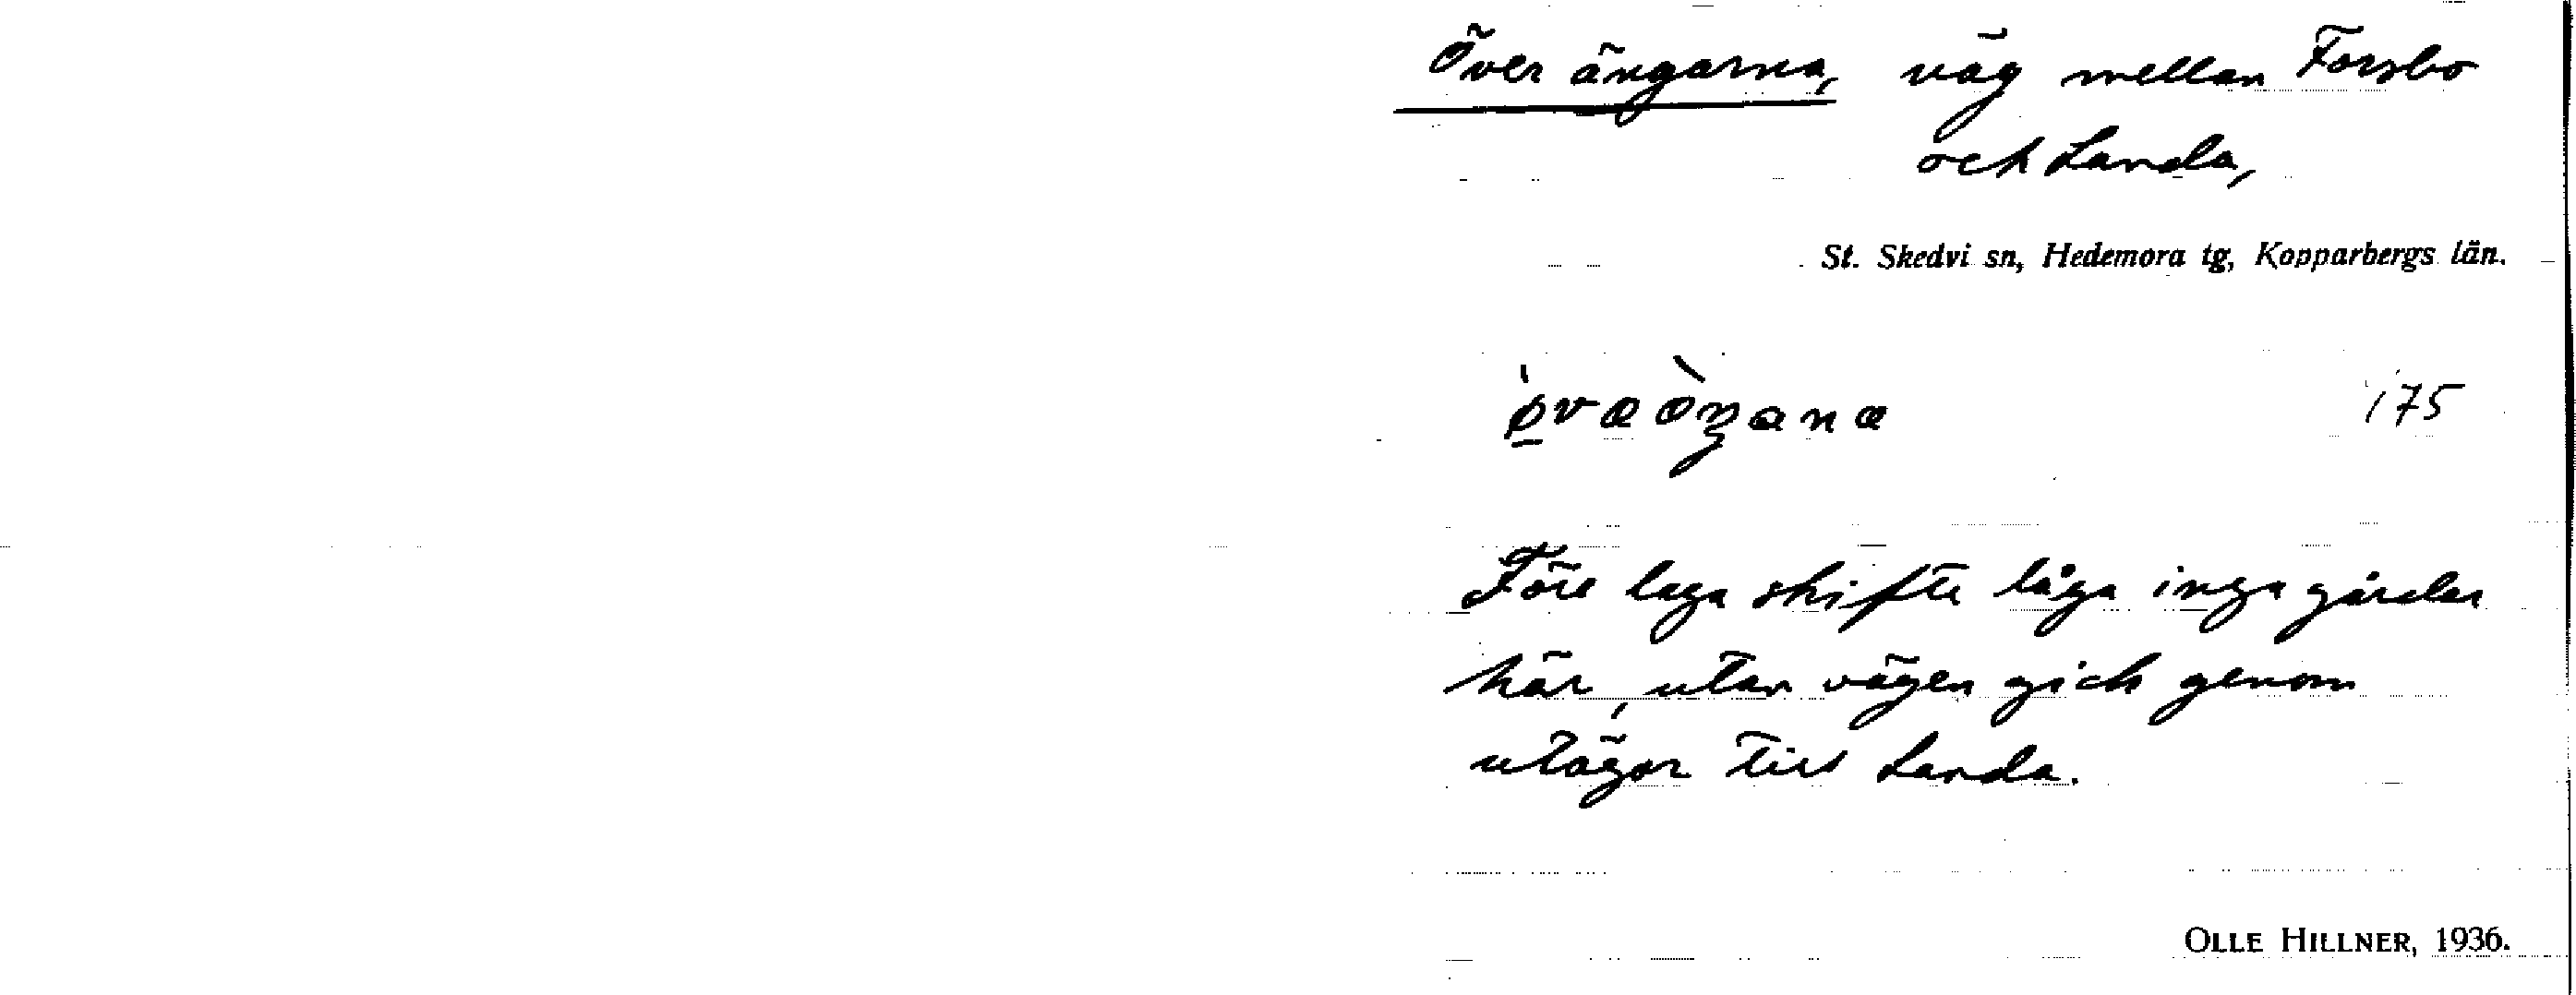 Över ängarna, väg mellan Forsbo
och Landa,
St. Skedvi sn, Hedemora tg, Kopparbergs län.
175
Före laga skifte låga inga gårdar
här, utan vägen gick genom
utägor till Landa.
OLLE HILLNER, 1936.